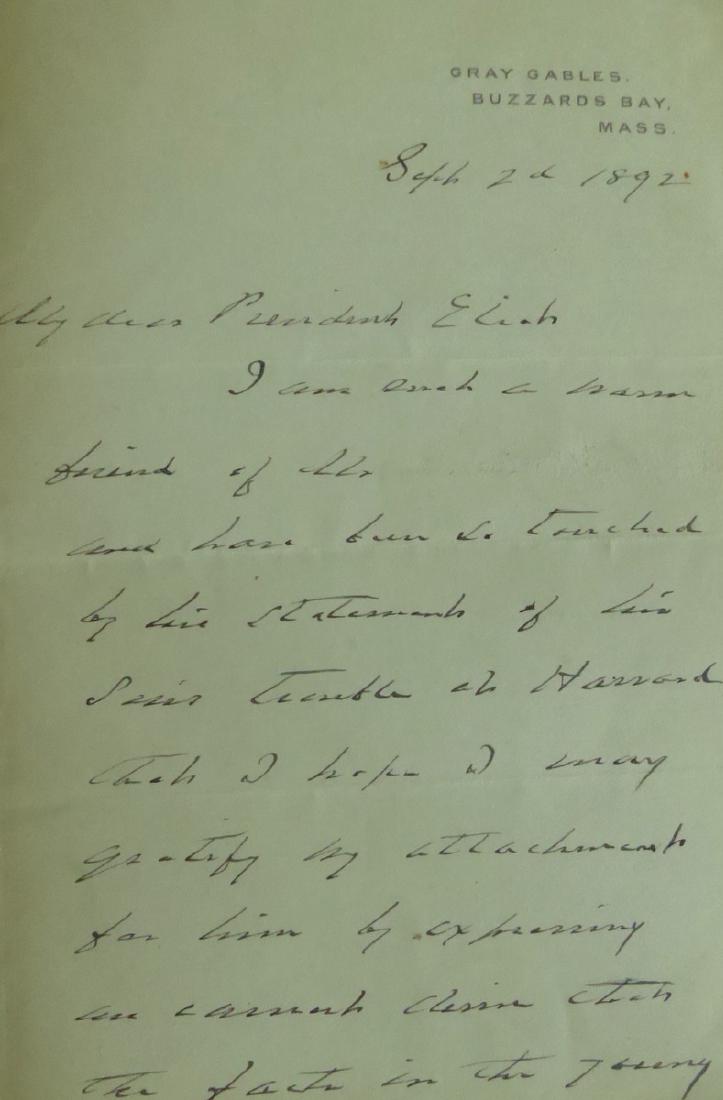 GRAY GABLES.
BUZZARDS BAY,
MASS.
Sept 2d 1892.
My dear President Eliot
I am such a warm
friend of Mr
and have been so touched
by his statement of his
Son's trouble at Harvard
that I hope I may
gratify my attachment
for him by expressing
an earnest desire that
the facts in the young